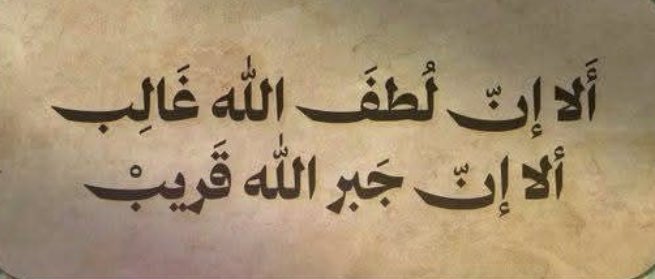 أَلا إنّ لُطفَ الله غَالِب
ألا إنّ جَبر الله قَريبْ